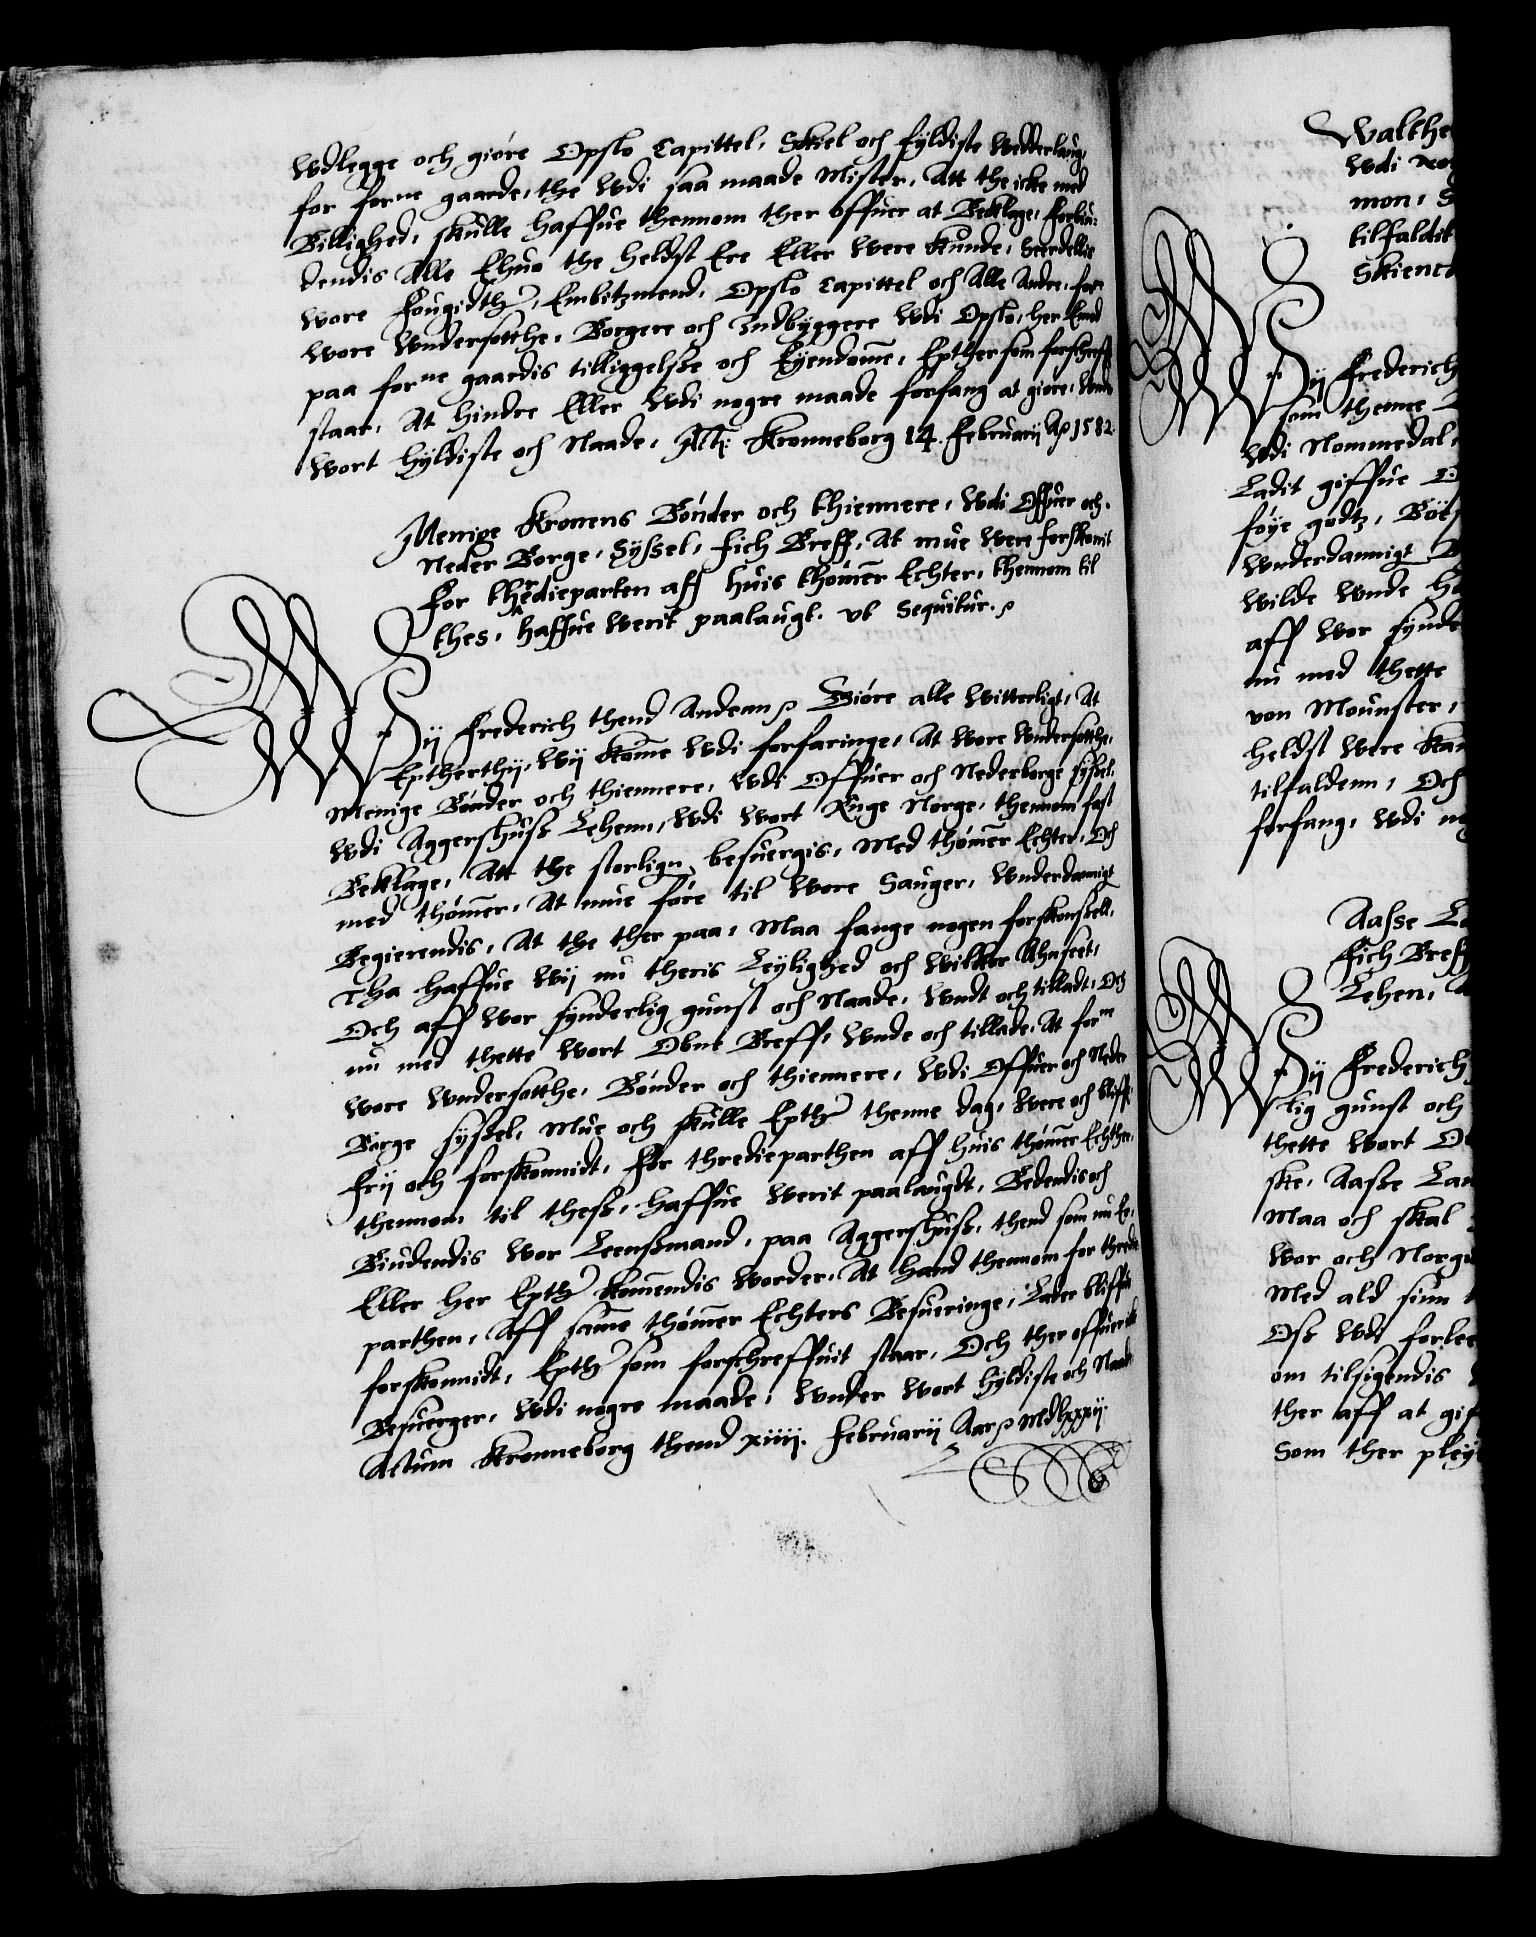 Wdlegge och giøre Opslo Capittel, Skiel och fyldiste Wedderlaug,
for forne gaarde, the Wdi saa maade Mister, Att the icke med
Billighed, skulle haffue thennom ther offuer at Becklage, Forbiu-
dendis Alle Ehuo the heldst Ere Eller Were kunde, Seerdellis
Wore Fougidther, Embitzmend, Opslo Capittel och Alle Andre, forne
Wore Wndersotthe, Borgere och Indbyggere Wdi Opslo, her Emod
paa forne gaardis tilliggelsze och Eyendome, Epther som forschreffuit
staar, At hindre Eller Wdi nogre maade forfang at giøre, Wnder
Wort hyldiste och Naade, Actz Kronneborg 14. Februarij Ao 1582.
Menige Kronens Bønder och thiennere, Wdi Offuer och
Neder Borge, Syssel, Fich Breff, At mue Were forskonit
For thredieparten aff huis thømer Echter, thennom til
thes, haffue Werit paalaugt. vt Sequitur.
Wij Frederich thend Andenn Giøre alle Witterligt, At
Eptherthij, Wij kome Wdi forfaringe, At Wore Wndersotthe,
Menige Bønder och thiennere, Wdi Offuer och Nederborge syszel,
Wdi Aggershusz Lehenn, Wdi Wort Rige Norge, thennom fast
Becklage, Att the storlign besuergis, Med thømer Echter, Och
med thømer, At mue føre til Wore Sauger, Wnderdannigt
Begierendis, At the ther paa, Maa fange nogen forskonszell,
Tha haffue Wij nu theris Leylighed och Wilkor Ahnseet,
Och aff Wor synderlig gunst och Naade, Wndt och tilladt, Och
nu med thette Wort Obne Breff, Wnde och tillade, At forne
Wore Wndersotthe, Bønder och thiennere, Wdi Offuer och Neder
Borge syszel, Mue och skulle Epther thenne dag, Were och bliffue
Frij och forskonnidt, For thredieparthen aff huis thømer Echther,
thennom til thesz, haffue Werit paalaugdt, Bedendis och
Biudendis Wor Leenszmand, paa Aggershusz, thend som nu Er,
Eller her Epther komendis Worder, At hand thennom for thredie
parthen, Aff same thømer Echters Besueringe, Lader bliffue
forskonnidt, Epther som forschreffuit staar, Och ther offuer icke
Besuerger, Wdi nogre maade, Wnder Wort hyldiste och Naade
Actum Kronneborg thend xiiij. Februarij Aar Mdlxxxij.
Walthe
Wdi
mon,
tilfaldit
Skienck
Wij Frederich
som thenne
Wdi Nommedal,
Ladit giffue
føye godtz,
Wnderdannigt
Wilde Wnde
aff Wor synde
nu med thette
von Mounster,
heldst Were
tilfaldenn, Och
forfang, Wdi
Aasse
Fich Breff
Lehen,
Wij Frederich
lig gunst och
thette Wort
ske, Aasze
Maa och skal
Wor och Norg
Med ald sinn
Osz Wdi forlee
om tilsigendis
ther aff at gif
Som ther pley